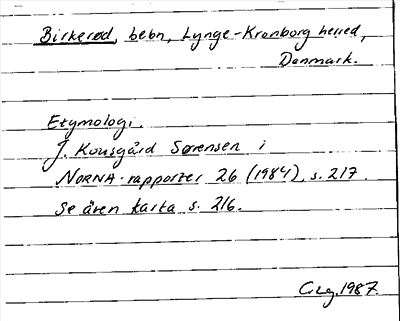 Birkerød, bebn, Lynge-Kronborg herred,
Danmark.
Etymologi.
J. Kousgård Sørensen i
NORNA-rapporter 26 (1984), s. 217.
Se även karta s. 216.
1987.